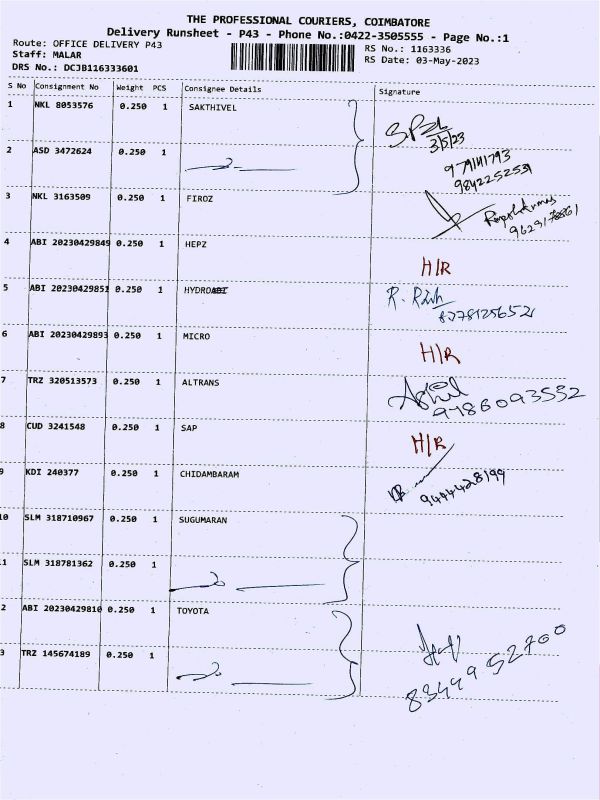 THE PROFESSIONAL COURIERS, COIMBATORE
Delivery Runsheet - P43 - Phone No.:0422-3505555 - Page No.:1
Route: OFFICE DELIVERY P43
Staff: MALAR
DRS No.: DCJB116333601
RS No.: 1163336
RS Date: 03-May-2023
S No Consignment No Weight PCS Consignee Details Signature
1 NKL 8053576 0.250 1 SAKTHIVEL
3/5/23
2 ASD 3472624 0.250 1
9842252531
3 NKL 3163509 0.250 1 FIROZ
4 ABI 20230429849 0.250 1 HEPZ
H/R
5 ABI 20230429851 0.250 1
6 ABI 20230429893 0.250 1 MICRO
H/R
7 TRZ 320513573 0.250 1 ALTRANS
9786093552
8 CUD 3241548 0.250 1 SAP
H/R
9 KDI 240377 0.250 1 CHIDAMBARAM
9444428199
10 SLM 318710967 0.250 1 SUGUMARAN
1 SLM 318781362 0.250 1
2 ABI 20230429810 0.250 1 TOYOTA
3 TRZ 145674189 0.250 1
8344952700